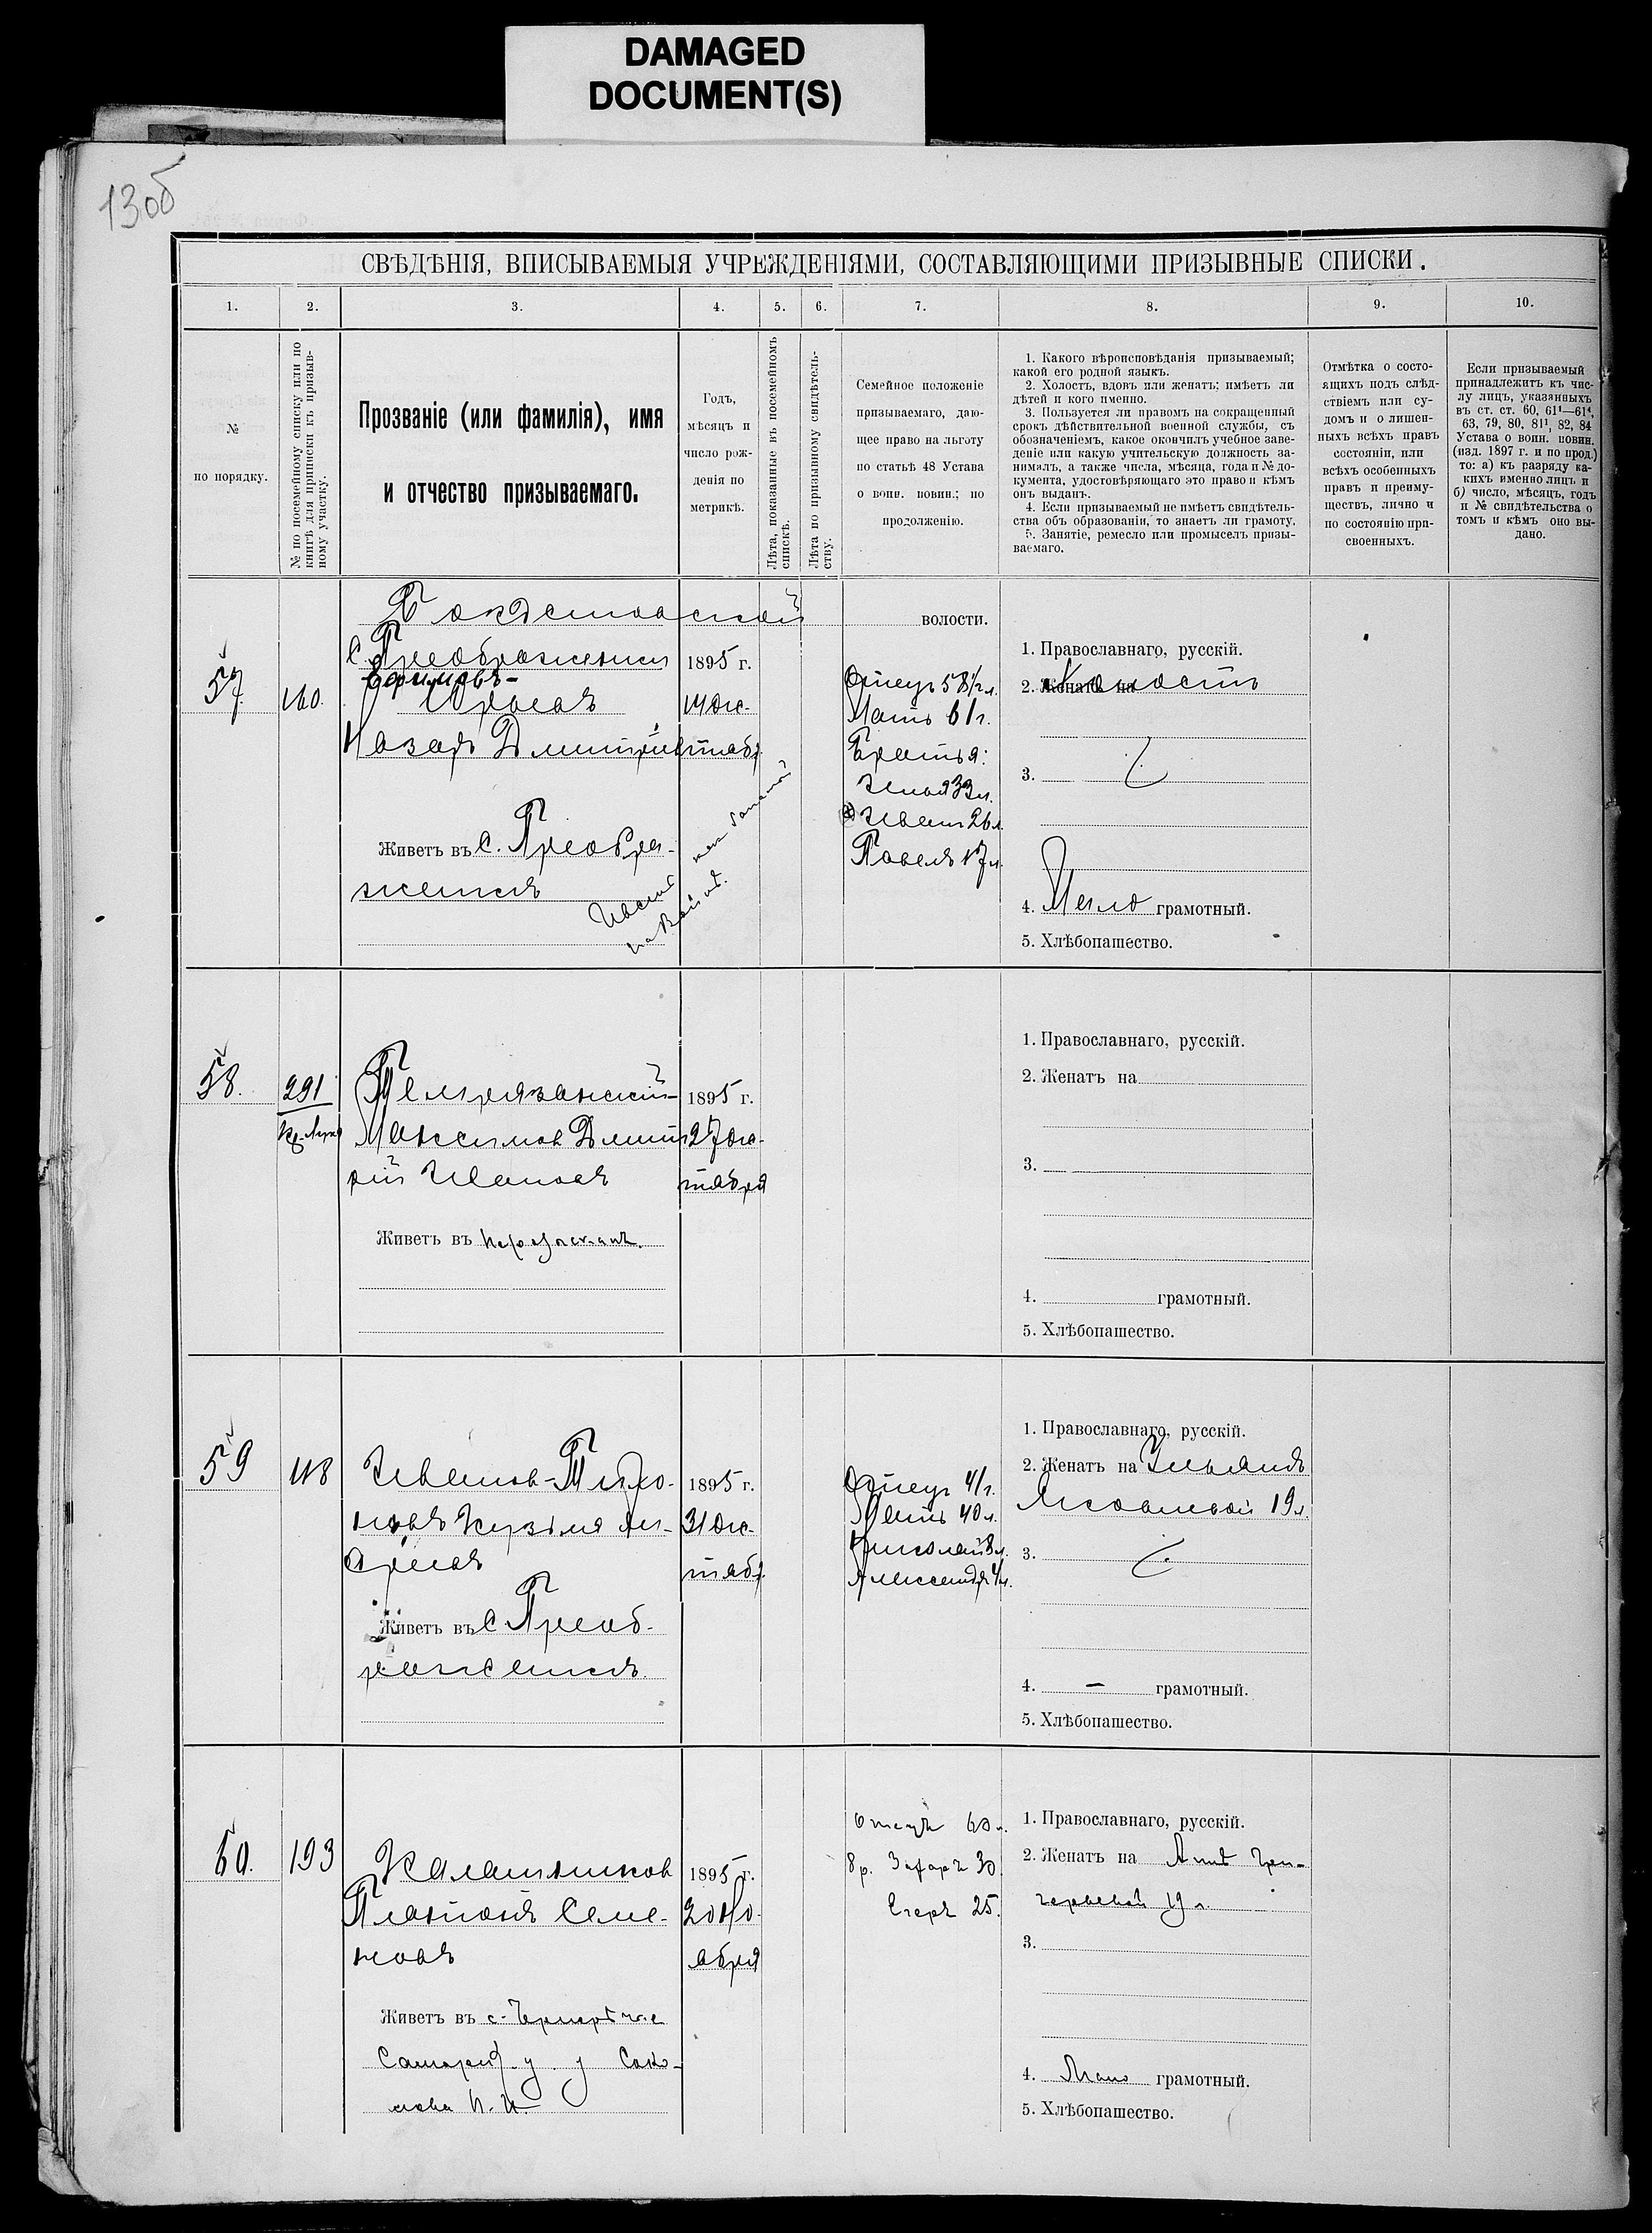 DAMAGED
DOCUMENT(S)
13об
СВѢДѢНІЯ, ВПИСЫВАЕМЫЯ УЧРЕЖДЕНІЯМИ, СОСТАВЛЯЮЩИМИ ПРИЗЫВНЫЕ СПИСКИ.
1. 2. 3. 4. 5. 6. 7. 8. 9. 10.
№
по порядку.
№ по посемейному списку или по
книгѣ для приписки къ призыв-
ному участку.
Прозваніе (или фамилія), имя
и отчество призываемаго.
Годъ,
мѣсяцъ и
число рож-
денія по
метрикѣ.
Лѣта, показанные въ посемейномъ
спискѣ.
Лѣта по призывному свидѣтель-
ству.
Семейное положеніе
призываемаго, даю-
щее право на льготу
по статьѣ 48 Устава
о воин. повин.; по
продолженію.
1. Какого вѣроисповѣданія призываемый;
какой его родной языкъ.
2. Холостъ, вдовъ или женатъ; имѣетъ ли
дѣтей и кого именно.
3. Пользуется ли правомъ на сокращенный
срокъ дѣйствительной военной службы, съ
обозначеніемъ, какое окончилъ учебное заве-
деніе или какую учительскую должность за-
нималъ, а также числа, мѣсяца, года и № до-
кумента, удостовѣряющаго это право и кѣмъ
онъ выданъ.
4. Если призываемый не имѣетъ свидѣтель-
ства объ образованіи, то знаетъ ли грамоту.
5. Занятіе, ремесло или промыселъ призы-
ваемаго.
Отмѣтка о состо-
ящихъ подъ слѣд-
ствіемъ или су-
домъ и о лишен-
ныхъ всѣхъ правъ
состоянія, или
всѣхъ особенныхъ
правъ и преиму-
ществъ, лично и
по состоянію при-
своенныхъ.
Если призываемый
принадлежитъ къ чис-
лу лицъ, указанныхъ
въ ст. ст. 60, 61¹—61⁴,
63, 79, 80, 81¹, 82, 84
Устава о воин. повин.
(изд. 1897 г. и по прод.)
то: а) къ разряду ка-
кихъ именно лицъ и
б) число, мѣсяцъ, годъ
и № свидѣтельства о
томъ и кѣмъ оно вы-
дано.
волости.
57. 160.
С. Преображенки
Ефимовъ-
Назаръ Дмитріев
1895 г.
14 ок-
тябр.
Живетъ въ с. Преобра-
женкѣ
Отецъ 58½ л.
Мать 61 г.
Братья:
Илья 33 л.
Иванъ 26 л.
Павелъ 17 л.
1. Православнаго, русскій.
2. Женатъ на Холостъ
3.
4. Мало грамотный.
5. Хлѣбопашество.
58. 291
Максимов Дмит
рій Ивановъ
1895 г.
27 ок-
тября
Живетъ въ
1. Православнаго, русскій.
2. Женатъ на
3.
4. грамотный.
5. Хлѣбопашество.
59 118
Иванов-
Кузьма
1895 г.
31 ок-
тябр.
Живетъ въ с Преоб-
раженкѣ.
Отецъ 41 г.
Мать 40 л.
Николай 8 л.
Александръ 4 л.
1. Православнаго, русскій.
2. Женатъ на Ульянѣ
19 л.
3.
4. — грамотный.
5. Хлѣбопашество.
60. 193
Калашников
Платонъ Семе-
новъ
1895 г.
20 но-
ября
Живетъ въ с.
у Соко-
лова
Отецъ 60 л.
Бр. Захаръ 30.
Егоръ 25.
1. Православнаго, русскій.
2. Женатъ на Аннѣ Гри-
горьевой 19 л.
3.
4. Мало грамотный.
5. Хлѣбопашество.